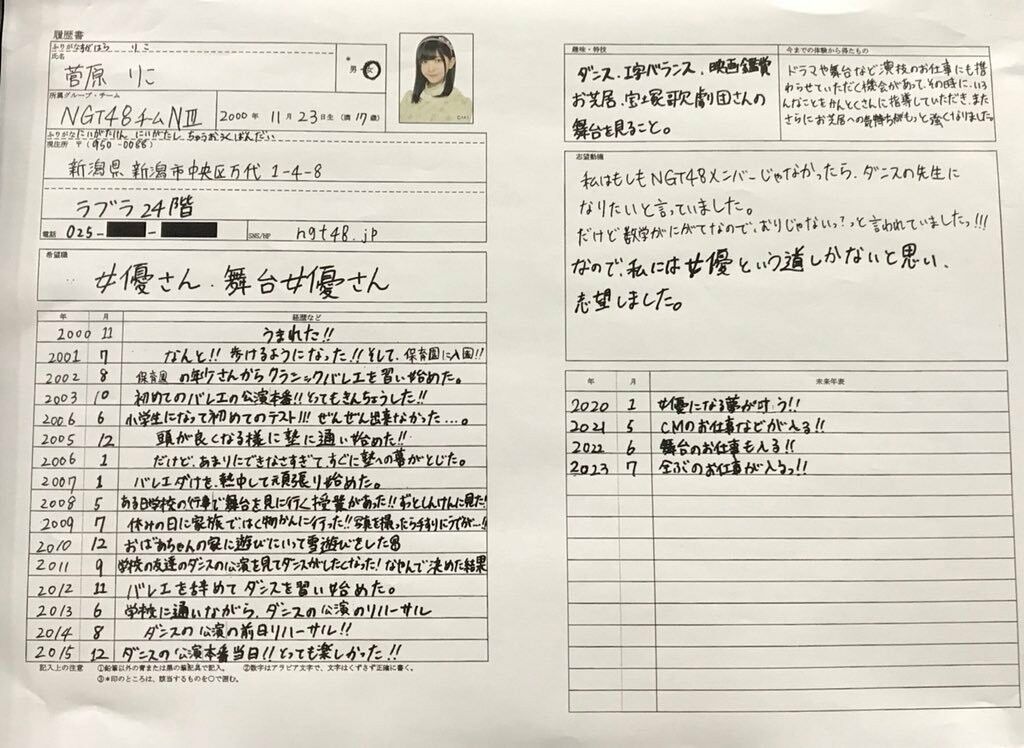 履歴書
ふりがな すがはら りこ
氏名
菅原 りこ
*
男・女
所属グループ・チーム
NGT48チームNⅢ
2000年 11月23日生 (満17歳)
ふりがな にいがたけん にいがたし ちゅうおうくばんだい
現住所 〒(950-0088)
新潟県 新潟市中央区万代 1-4-8
ラブラ24階
電話 025- -
SNS/HP ngt48.jp
希望職
女優さん、舞台女優さん
年 月 経歴など
2000 11 うまれた!!
2001 7 なんと!! 歩けるようになった!! そして、保育園に入園!!
2002 8 保育園の年少さんからクラシックバレエを習い始めた。
2003 10 初めてのバレエの公演本番!! とてもきんちょうした!!
2006 6 小学生になって初めてのテスト!!! ぜんぜん出来なかった…。
2005 12 頭が良くなる様に塾に通い始めた!!
2006 1 だけど、あまりにできなさすぎて、すぐに塾への幕がとじた。
2007 1 バレエだけを、熱中して頑張り始めた。
2008 5 ある日学校の行事で舞台を見に行く授業があった!! ずっとしんけんに見た!
2009 7 休みの日に家族で、はく物かんに行った!! 写真を撮ったら手すりにうでが…!!
2010 12 おばあちゃんの家に遊びにいって雪遊びをした
2011 9 学校の友達のダンスの公演を見てダンスがしたくなった! なやんで決めた結果
2012 11 バレエを辞めてダンスを習い始めた。
2013 6 学校に通いながら、ダンスの公演のリハーサル
2014 8 ダンスの公演の前日リハーサル!!
2015 12 ダンスの公演本番当日!! とても楽しかった!!
記入上の注意 ①鉛筆以外の青または黒の筆記具で記入。 ②数字はアラビア文字で、文字はくずさず正確に書く。
③*印のところは、該当するものを○で囲む。
趣味・特技
ダンス、I字バランス、映画鑑賞
お芝居、宝塚歌劇団さんの
舞台を見ること。
今までの体験から得たもの
ドラマや舞台など演技のお仕事にも携
わらせていただく機会があって、その時に、いろ
んなことをかんとくさんに指導していただき、また
さらにお芝居への気持ちがもっと強くなりました。
志望動機
私はもしもNGT48メンバーじゃなかったら、ダンスの先生に
なりたいと言っていました。
だけど数学がにがてなので、むりじゃないっ?っと言われていましたっ!!!
なので、私には女優という道しかないと思い、
志望しました。
年 月 未来年表
2020 1 女優になる夢が叶う!!
2021 5 CMのお仕事などが入る!!
2022 6 舞台のお仕事も入る!!
2023 7 全ぶのお仕事が入るっ!!